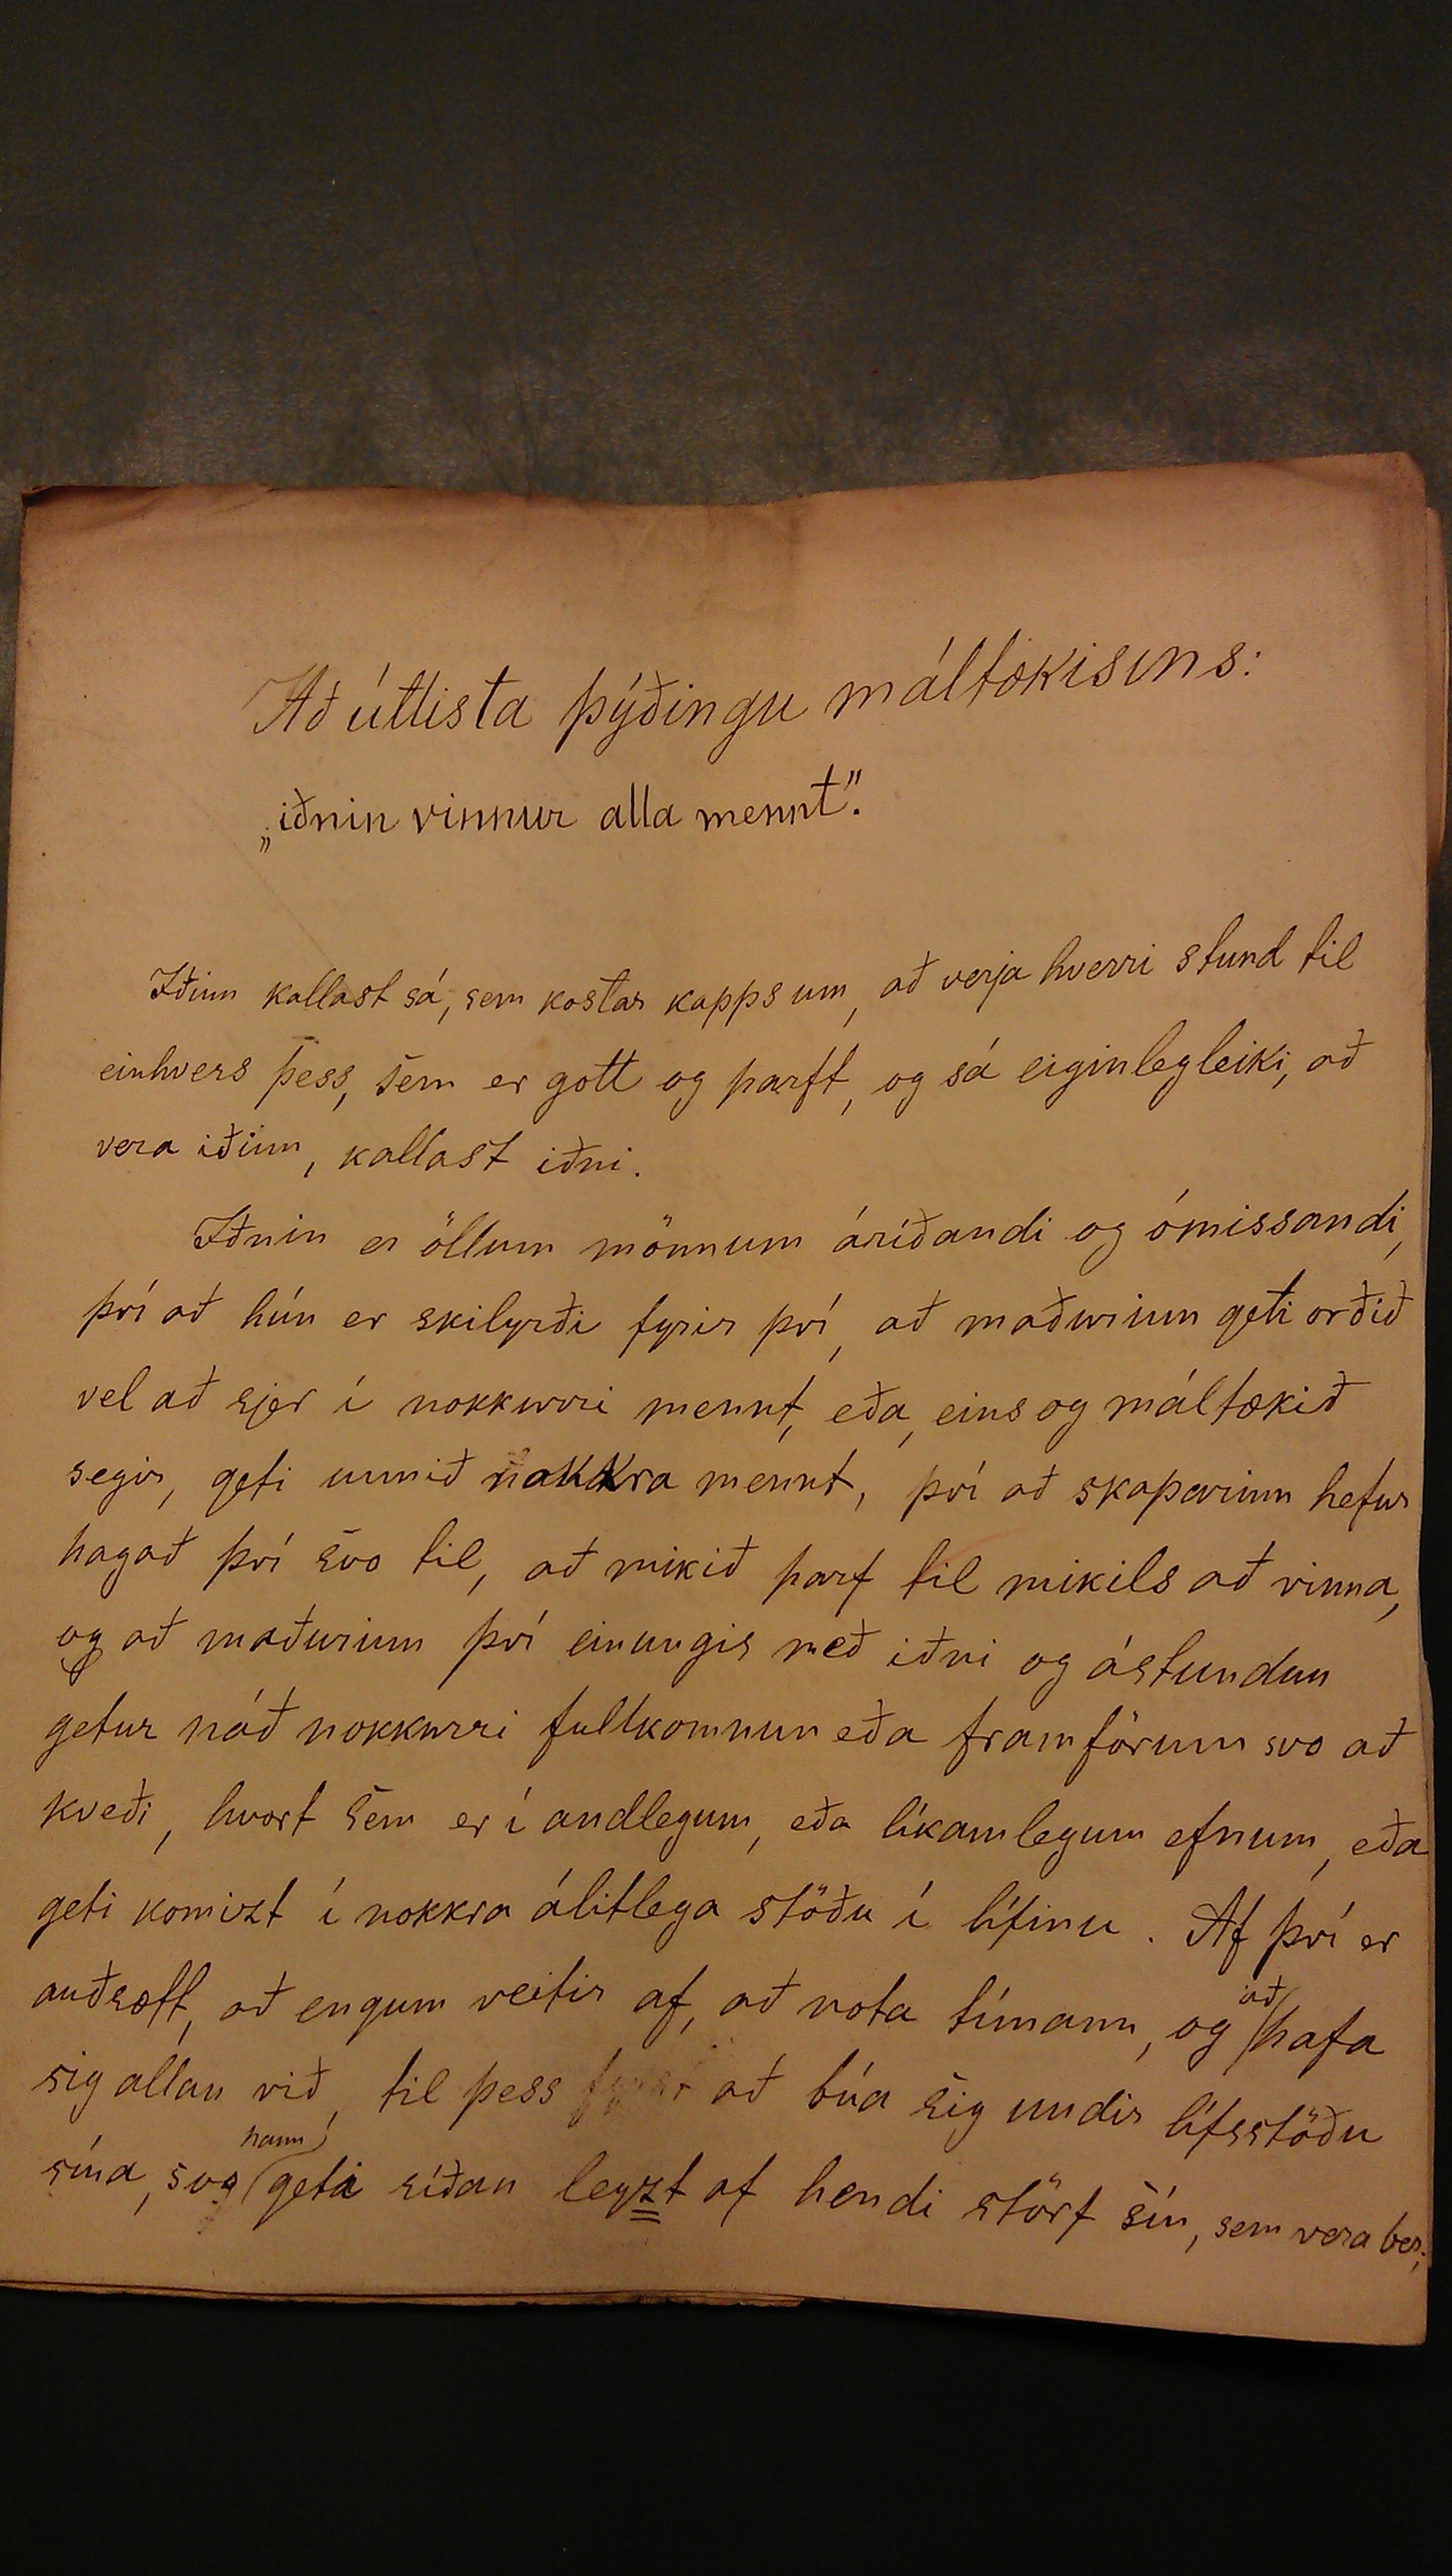 Að útlista þýðingu máltækisins:
„iðnin vinnur alla mennt".
Iðinn kallast sá, sem kostar kapps um, að verja hverri stund til
einhvers þess, sem er gott og þarft, og sá eiginlegleiki, að
vera iðinn, kallast iðni.
Iðnin er öllum mönnum áríðandi og ómissandi,
því að hún er skilyrði fyrir því, að maðurinn geti orðið
vel að sjer í nokkurri mennt, eða, eins og máltækið
segir, geti unnið nokkra mennt, því að skaparinn hefur
hagað því svo til, að mikið þarf til mikils að vinna,
og að maðurinn því einungis með iðni og ástundun
getur náð nokkurri fullkomnun eða framförum svo að
kveði, hvort sem er í andlegum, eða líkamlegum efnum, eða
geti komizt í nokkra álitlega stöðu í lífinu. Af því er
auðsætt, að engum veitir af, að nota tímann, og að hafa
sig allan við, til þess að búa sig undir lífsstöðu
sína, svo hann geti síðan leyzt af hendi störf sín, sem vera ber;